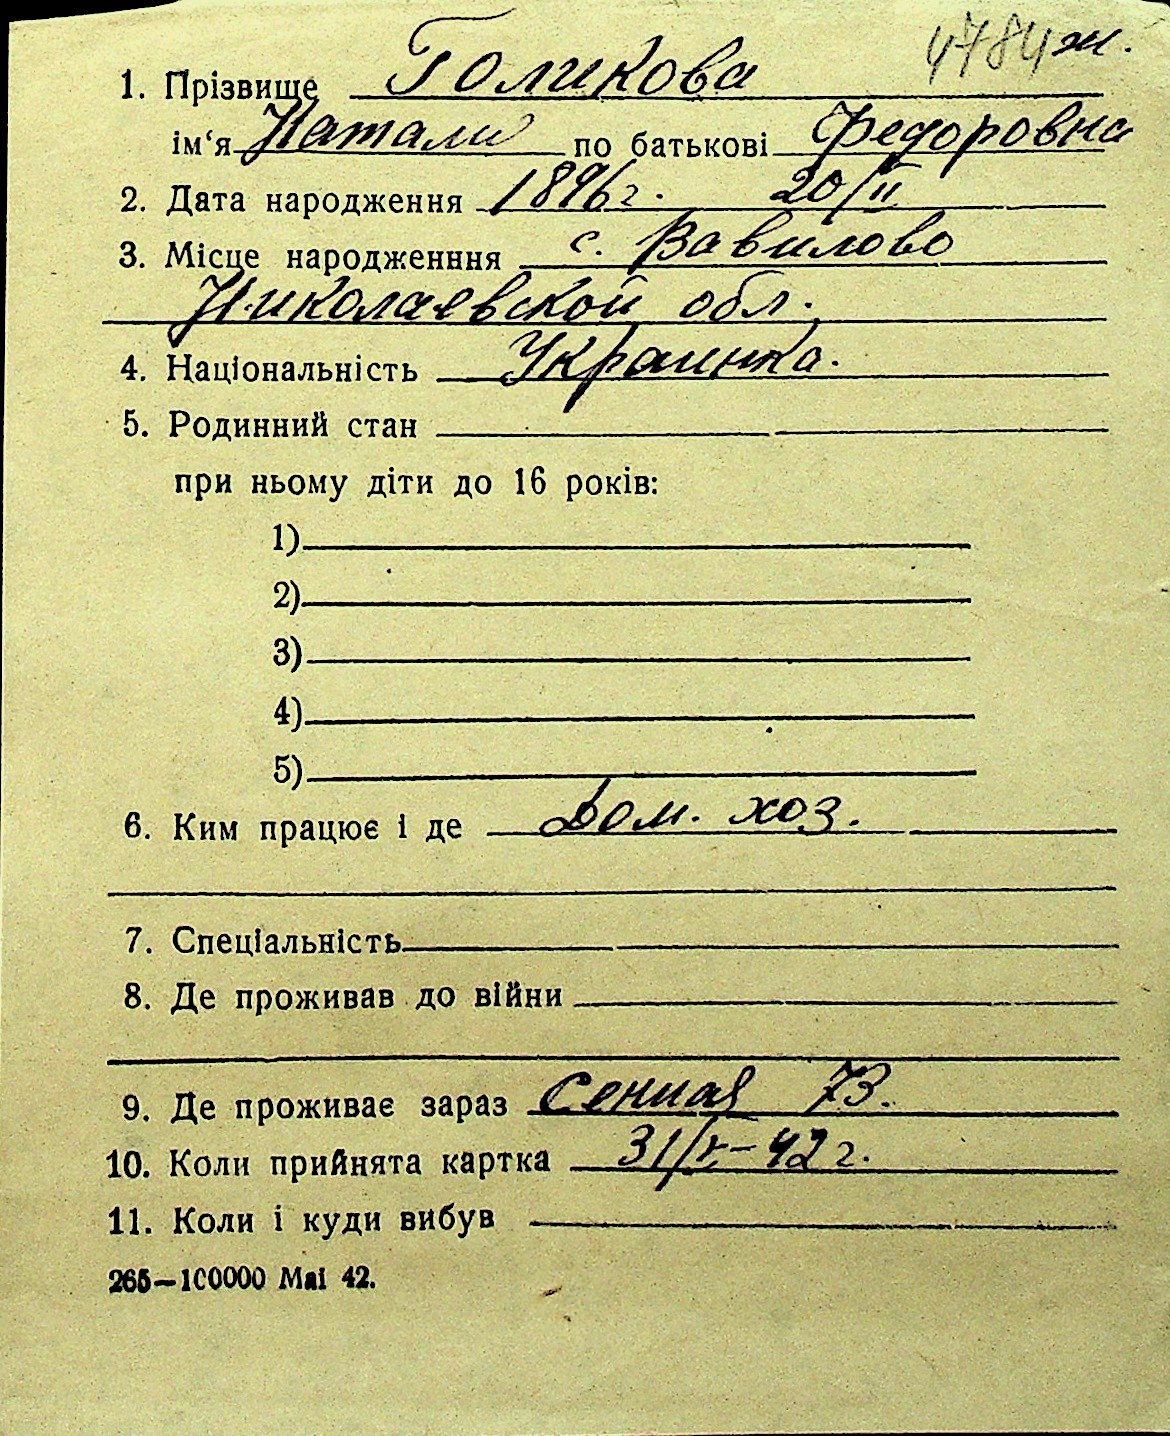 4784 ж.
1. Прізвище Голикова
ім‘я Натали по батькові Федоровна
2. Дата народження 1896 г. 20/II
3. Місце народженння с. Вавилово
Николаевской обл.
4. Національність Украинка.
5. Родинний стан
при ньому діти до 16 років:
1)
2)
3)
4)
5)
6. Ким працює і де Дом. хоз.
7. Спеціальність
8. Де проживав до війни
9. Де проживає зараз Сенная 73.
10. Коли прийнята картка 31/V-42 г.
11. Коли і куди вибув
265—100000 Mai 42.